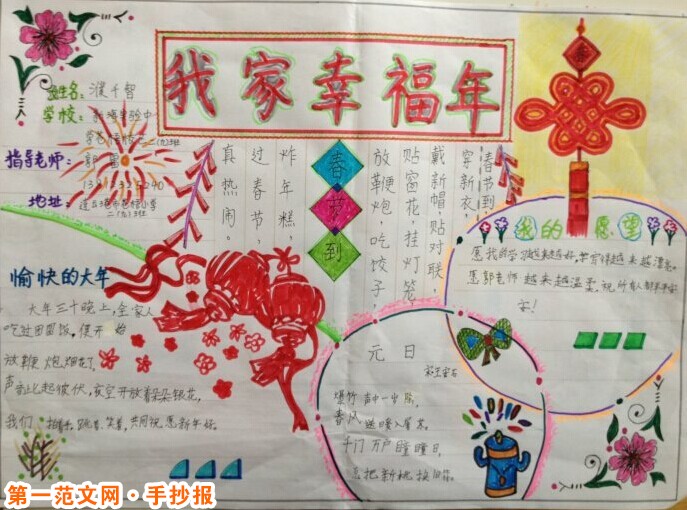 我家幸福年
姓名：濮千智
学校：
指导老师：郭
地址：
二(九)班
春节到
春节到，
穿新衣，
戴新帽，贴对联，
贴窗花，挂灯笼，
放鞭炮，吃饺子，
炸年糕，
过春节，
真热闹。
我的愿望
愿我的学习越来越好，
愿郭老师越来越温柔，祝所有
愉快的大年
大年三十晚上，全家人
吃过团圆饭，便开始
放鞭炮，烟花了，
声音此起彼伏，夜空开放着朵朵银花，
我们 拍着手，跳着，笑着，共同祝愿新年好。
元日
宋王安石
爆竹声中一岁除，
春风送暖入屠苏。
千门万户瞳瞳日，
总把新桃换旧符。
第一范文网·手抄报